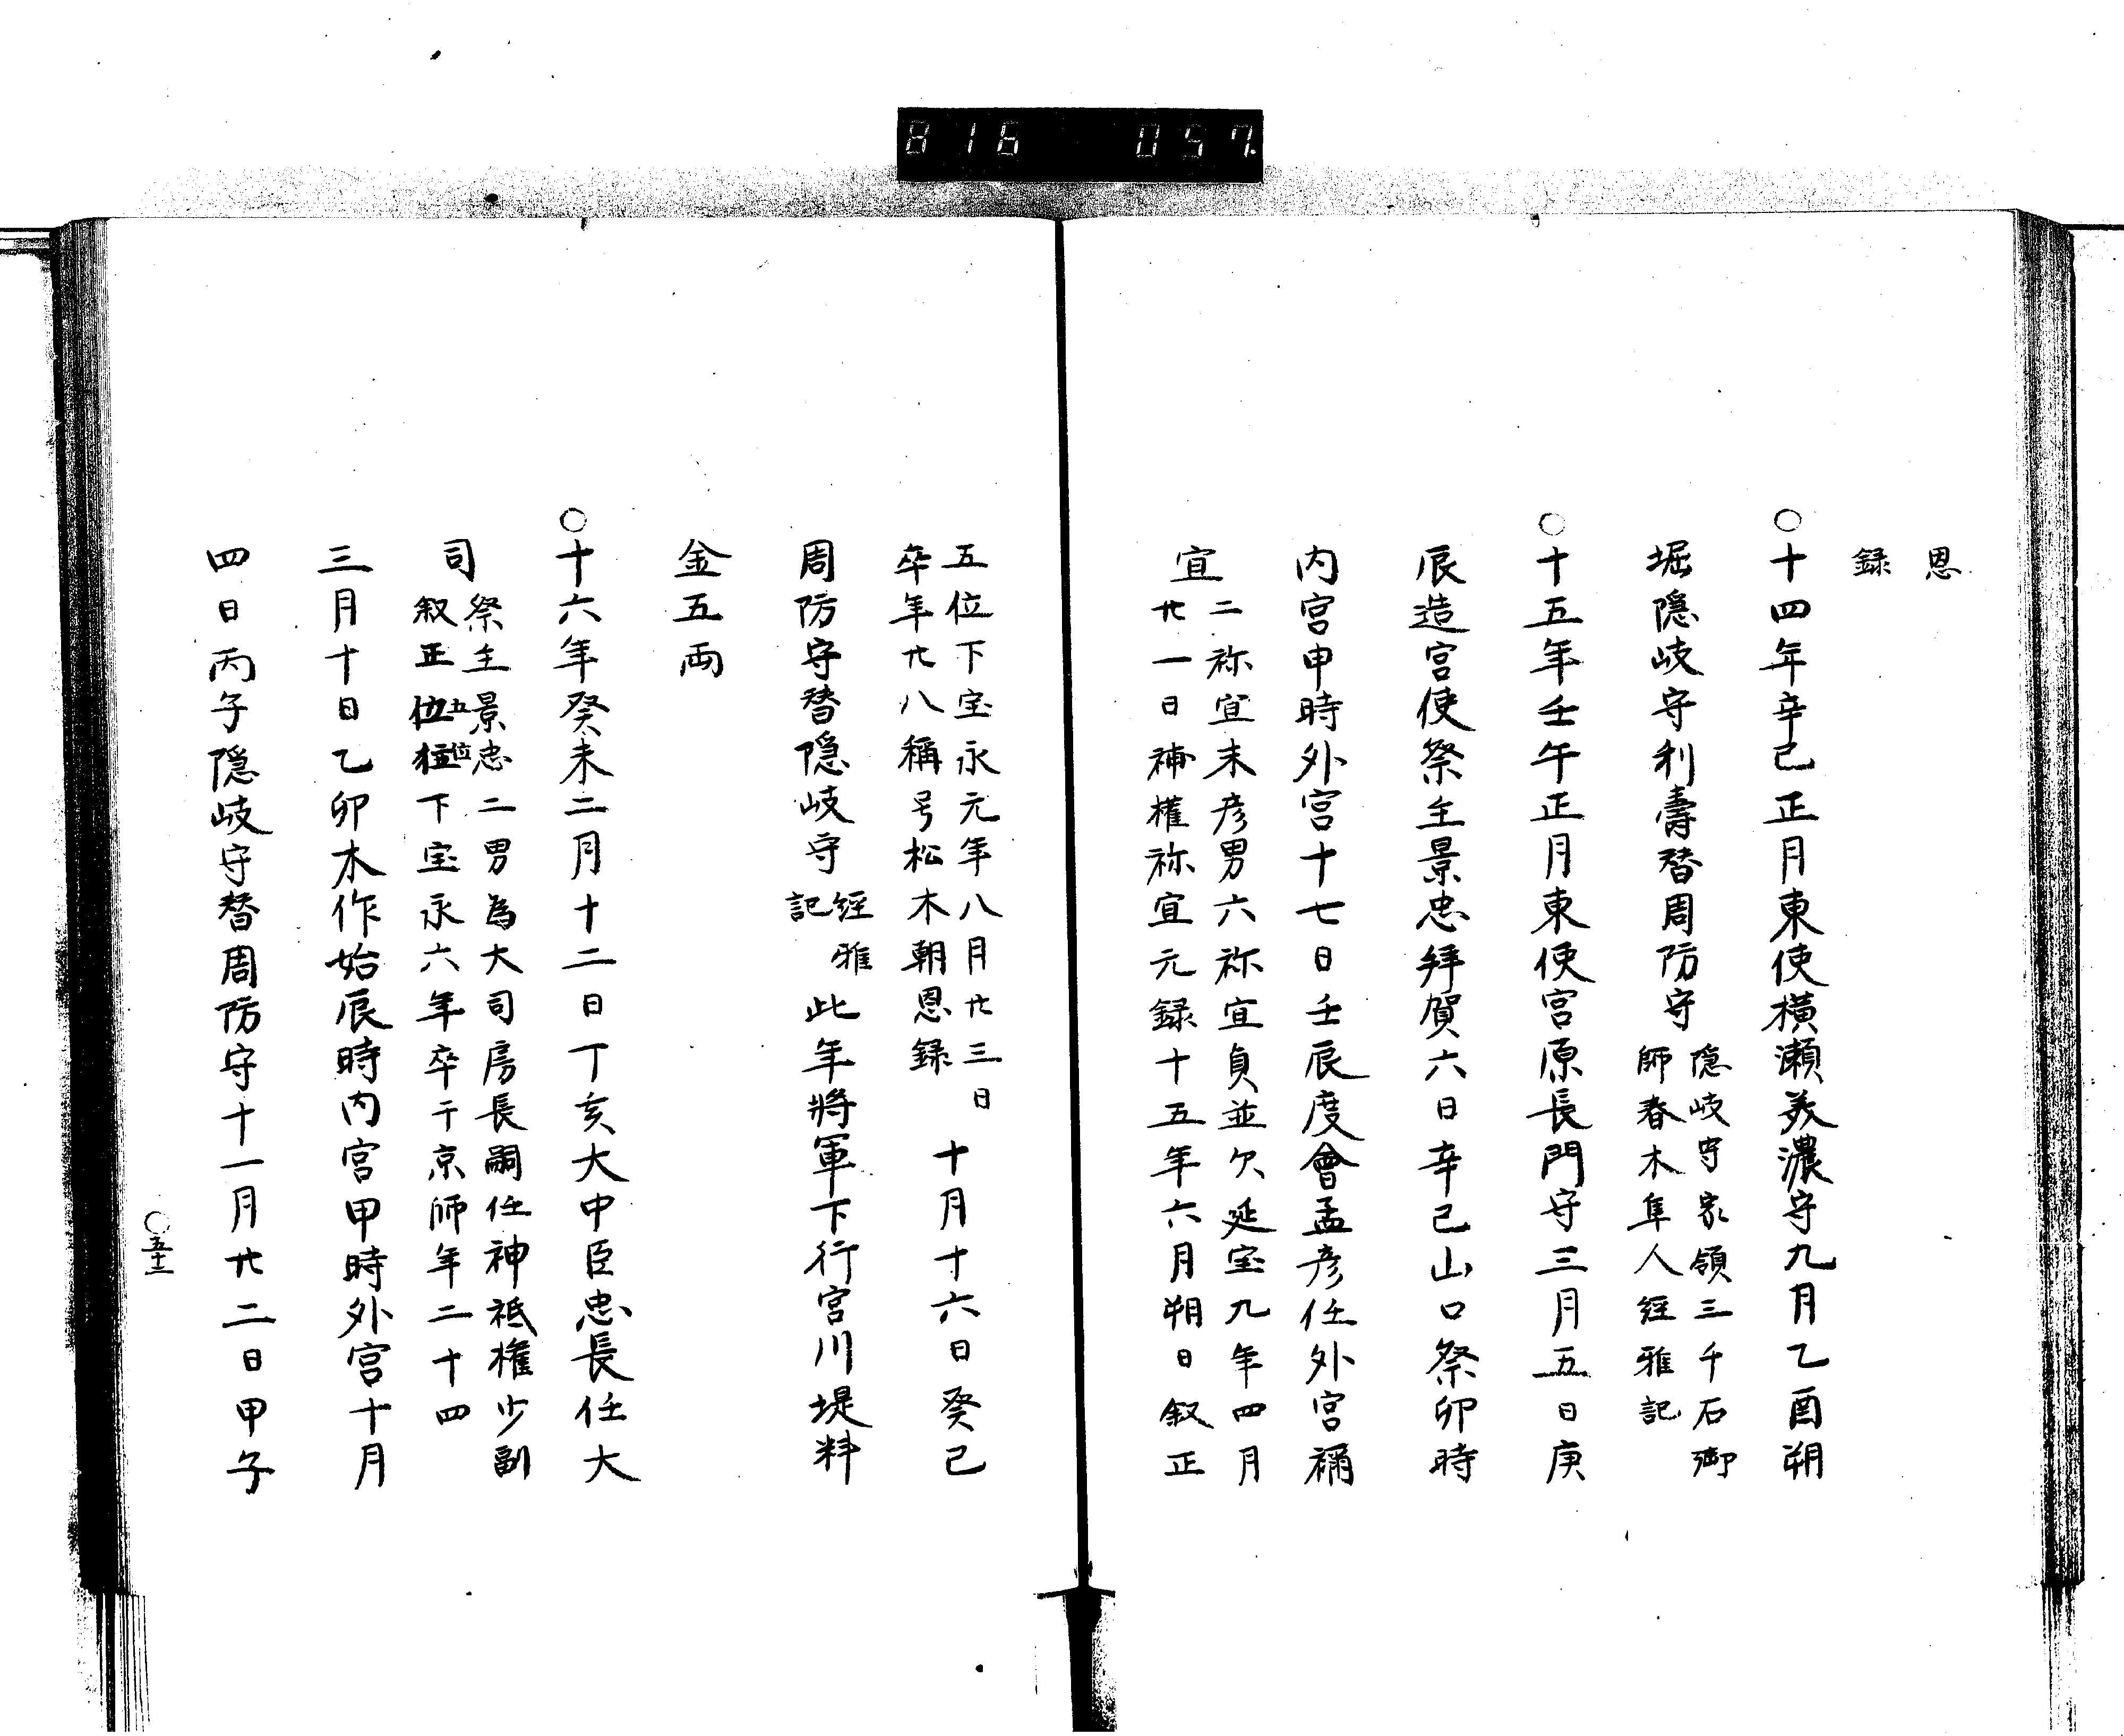 816 057
恩
録
○十四年辛巳正月東使横瀬美濃守九月乙酉朔
堀隠岐守利壽替周防守
隠岐守家領三千石御
師春木隼人経雅記
○十五年壬午正月東使宮原長門守三月五日庚
辰造宮使祭主景忠拝賀六日辛巳山口祭卯時
内宮申時外宮十七日壬辰度會孟彦任外宮禰
宜
二祢宜末彦男六祢宜貞並欠延宝九年四月
廿一日補権祢宜元録十五年六月朔日叙正
五位下宝永元年八月廿三日
卒年廿八稱号松木朝恩録
十月十六日癸巳
周防守替隠岐守
経雅
記
此年將軍下行宮川堤料
金五両
○十六年癸未二月十二日丁亥大中臣忠長任大
司
祭主景忠二男為大司房長嗣任神祇権少副
叙正五位下宝永六年卒于京師年二十四
三月十日乙卯木作始辰時内宮甲時外宮十月
四日丙子隠岐守替周防守十一月廿二日甲子
○五十三